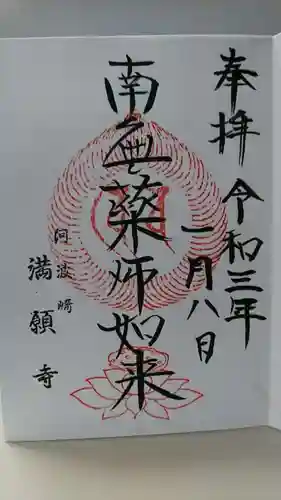 奉拝 令和三年
一月八日
南無薬師如来
阿波勝
満願寺